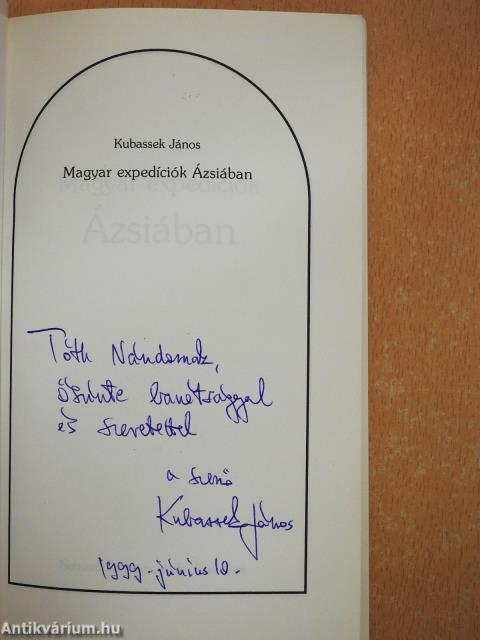 Kubassek János
Magyar expedíciók Ázsiában
Magyar expedíciók
Ázsiában
Tóth Nándornak,
őszinte barátsággal
és szeretettel
a szerző
Kubassek János
1999. június 10.
Antikvárium.hu